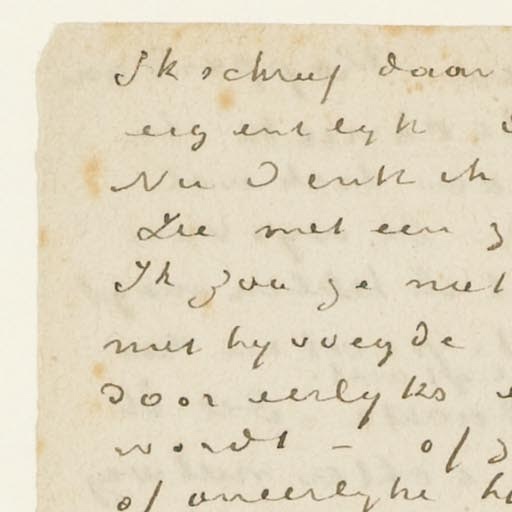 Ik schreef daar
eigentlyk
Nu denk ik
Die met een
Ik zou ze niet
niet byvoegde
door eerlyks
wordt – of
of oneerlyke